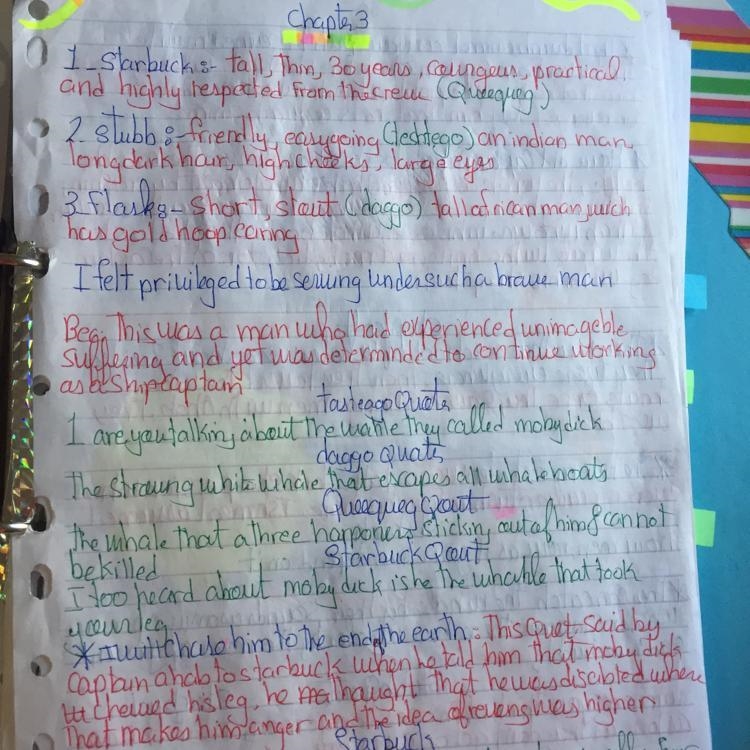 Chapter 3
1_Starbuck :- tall, thin, 30 years, courgeus, practical,
and highly respected from the crew (Queequeg)
2 stubb :- friendly, easygoing (teshtego) an indian man
long dark hair, high cheeks, large eyes
3_Flask :- Short, stout (daggo) tall african man
has gold hoop earing
I felt privileged to be serving under such a brave man
Beg: This was a man who had experienced unimageble
suffering and yet was determinded to continue working
as a ship captain
tasteago Quote
1 are you talking about the whale they called moby dick
daggo quats
the stroung white whale that escapes all whale boats
Queequeg Qout
the whale that a three harponers sticking out of him & cannot
be killed
Starbuck Qout
I too heard about moby dick is he the whahle that took
your leg
* I will chase him to the end of the earth : This Quet said by
captain ahab to starbuck when he told him that moby dick
chewed his leg, he thought that he was discibled where
that makes him anger and the idea of reveng was higher
Starbuck